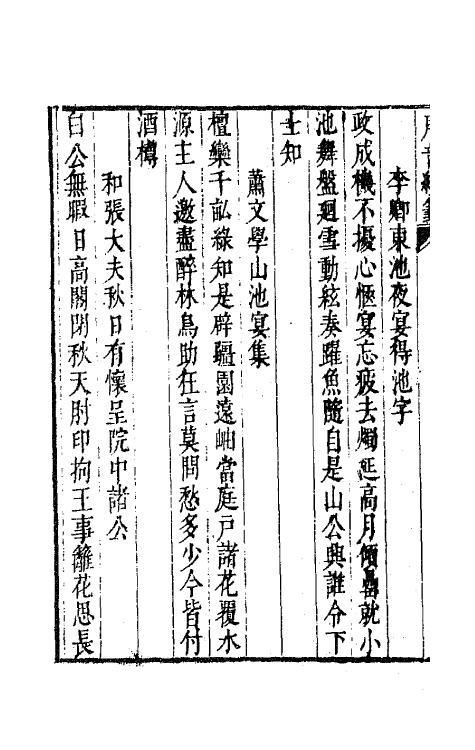 李卿東池夜宴得池字
政成機不擾心愜宴忘疲去燭延高月傾罍就小
池舞盤迴雪動絃奏躍魚隨自是山公興誰令下
士知
蕭文學山池宴集
檀欒千畝綠知是辟疆園遠岫當庭戶諸花覆水
源主人邀盡醉林鳥助狂言莫問愁多少今皆付
酒樽
和張大夫秋日有懷呈院中諸公
白公無暇日高閣閉秋天肘印拘王事籬花思長